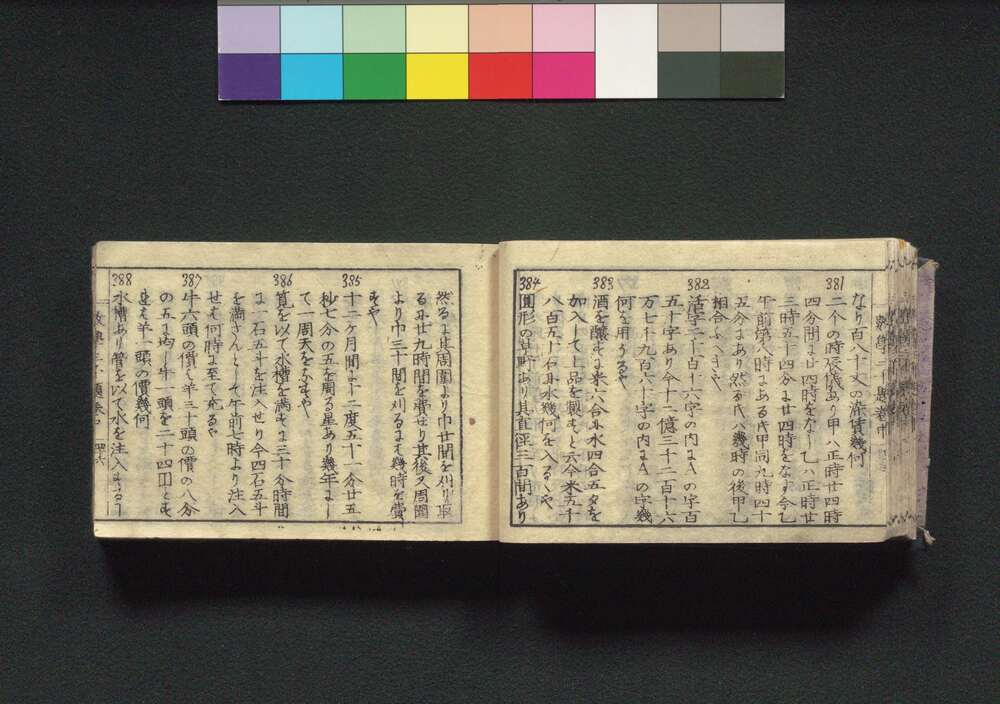 なり百八十丈の深賃幾何
381
二个の時辰儀あり甲ハ正時廿四時
四分間に廿四時をなし乙ハ正時廿
三時五十四分に廿四時をなす今乙
午前第八時にある氏甲同九時四十
五分にあり然る氏ハ幾時の後甲乙
相合ふべきや
382
活字二千六百十六字の内にAの字百
五十字あり今十二億三千二百十六
万七千九百六十字の内にAの字幾
何を用うるや
383
酒を醸すに米六合に水四合五夕を
加入して上品を製すと云今米五千
八百五十石に水幾何を入るゝや
384
圓形の草野あり其直径三百間あり
然るに周圍より巾廿間を刈り取
るに廿九時間を費せり其後又周圍
より巾三十間を刈るには幾時を費
すや
385
十二ヶ月間に十二度五十一分廿五
秒七分の五を周る星あり幾年にし
て一周天をなすや
386
筧を以て水槽を満すに三十分時間
に一石五斗を注入せり今四石五斗
を満さんとして午前七時より注入
せは何時に至て充るや
387
牛六頭の價ハ羊三十頭の價の八分
の五に均し牛一頭を二十四円とす
れは羊一頭の價幾何
388
水槽あり管を以て水を注入するに